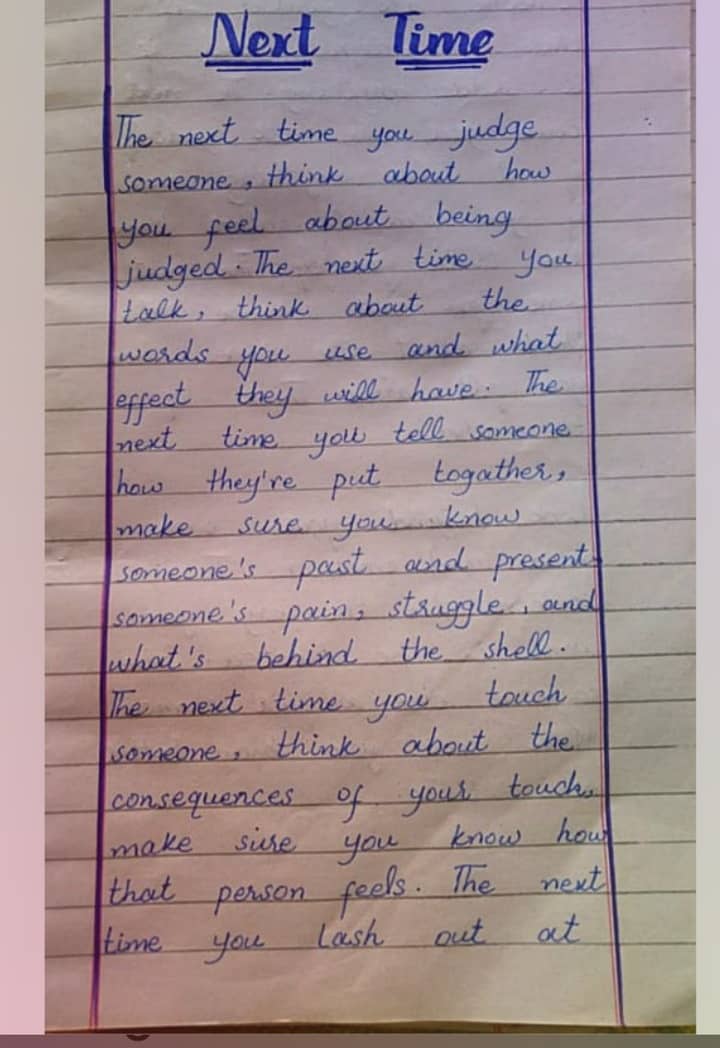 Next Time
The next time you judge
someone, think about how
you feel about being
judged. The next time you
talk, think about the
words you use and what
effect they will have. The
next time you tell someone
how they're put togather,
make sure you know
someone's past and present,
someone's pain, struggle, and
what's behind the shell.
The next time you touch
someone, think about the
consequences of your touch,
make sure you know how
that person feels. The next
time you lash out at